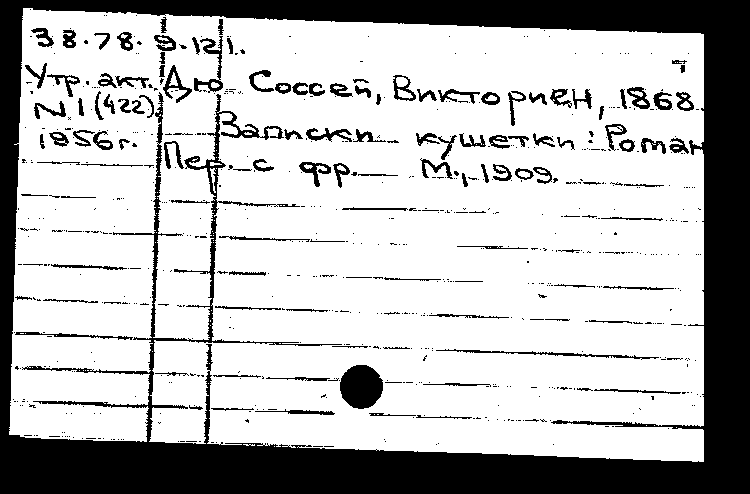 38.78.9.121.
Утр. акт. Дю Соссей, Викториен, 1868.
N 1 (422)
Записки кушетки : Роман
1956 г.
Пер. с фр. — М., 1909.